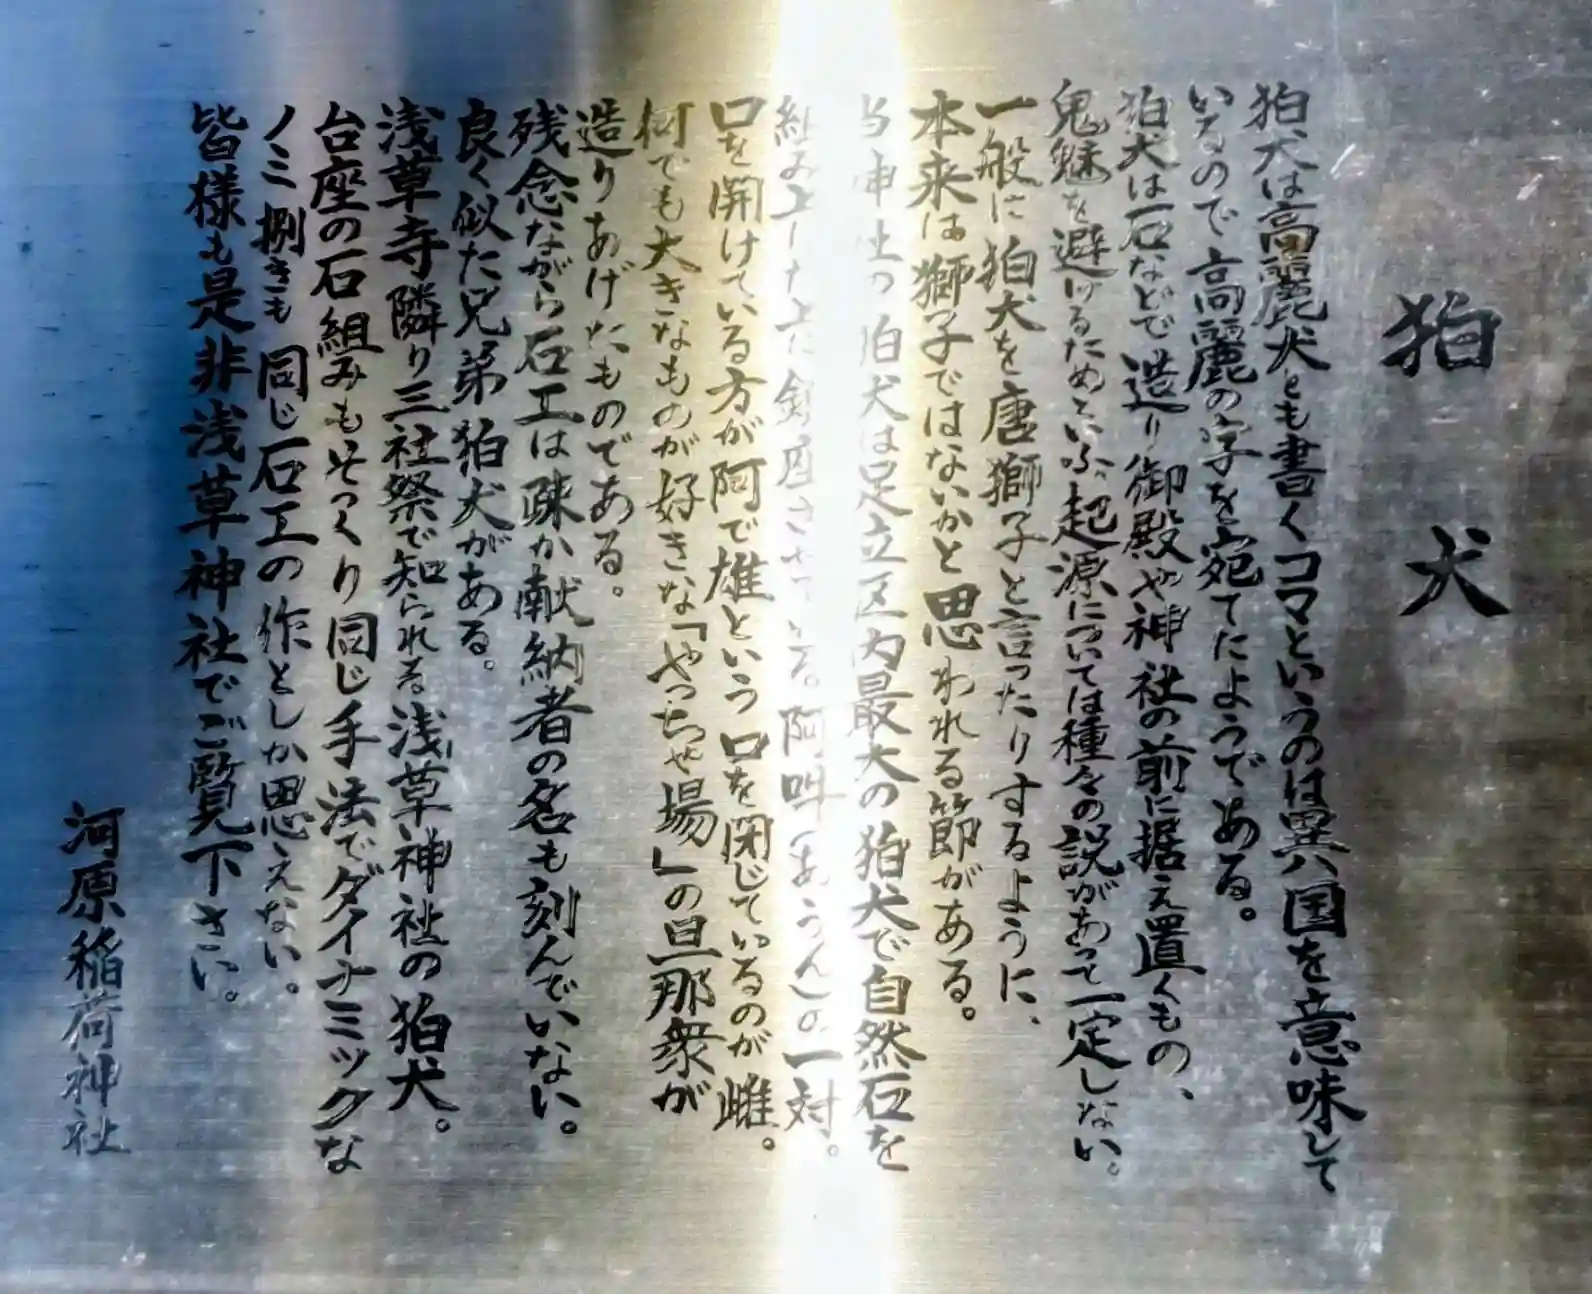 狛犬
狛犬は高麗犬とも書くコマというのは異国を意味して
いるので高麗の字を宛てたようである。
狛犬は石などで造り御殿や神社の前に据え置くもの、
鬼魅を避けるためといふ起源については種々の説があって一定しない。
一般に狛犬を唐獅子と言ったりするように、
本来は獅子ではないかと思われる節がある。
当神社の狛犬は足立区内最大の狛犬で自然石を
組み上げた上に鎮座させている。阿吽(あうん)の一対。
口を開けている方が阿で雄という口を閉じているのが雌。
何でも大きなものが好きな「やっちゃ場」の旦那衆が
造りあげたものである。
残念ながら石工は疎か献納者の名も刻んでいない。
良く似た兄弟狛犬がある。
浅草寺隣り三社祭で知られる浅草神社の狛犬。
台座の石組みもそっくり同じ手法でダイナミックな
ノミ捌きも同じ石工の作としか思えない。
皆様も是非浅草神社でご覧下さい。
河原稲荷神社